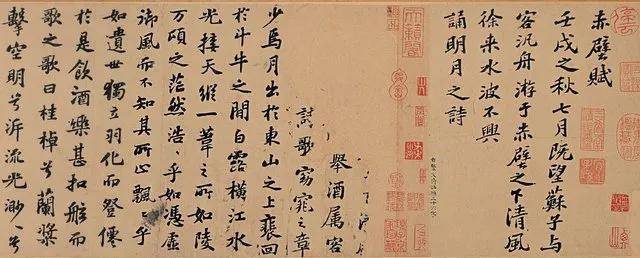 赤壁賦
壬戌之秋七月既望蘇子與
客汎舟游于赤壁之下清風
徐来水波不興
舉酒属客
誦明月之詩
歌窈窕之章
少焉月出於東山之上裵回
於斗牛之間白露橫江水
光接天縱一葦之所如陵
万頃之茫然浩〻乎如馮虛
御風而不知其所止飄〻乎
如遺世獨立羽化而登僊
於是飲酒樂甚扣舷而
歌之歌曰桂棹兮蘭槳
擊空明兮泝流光渺〻兮